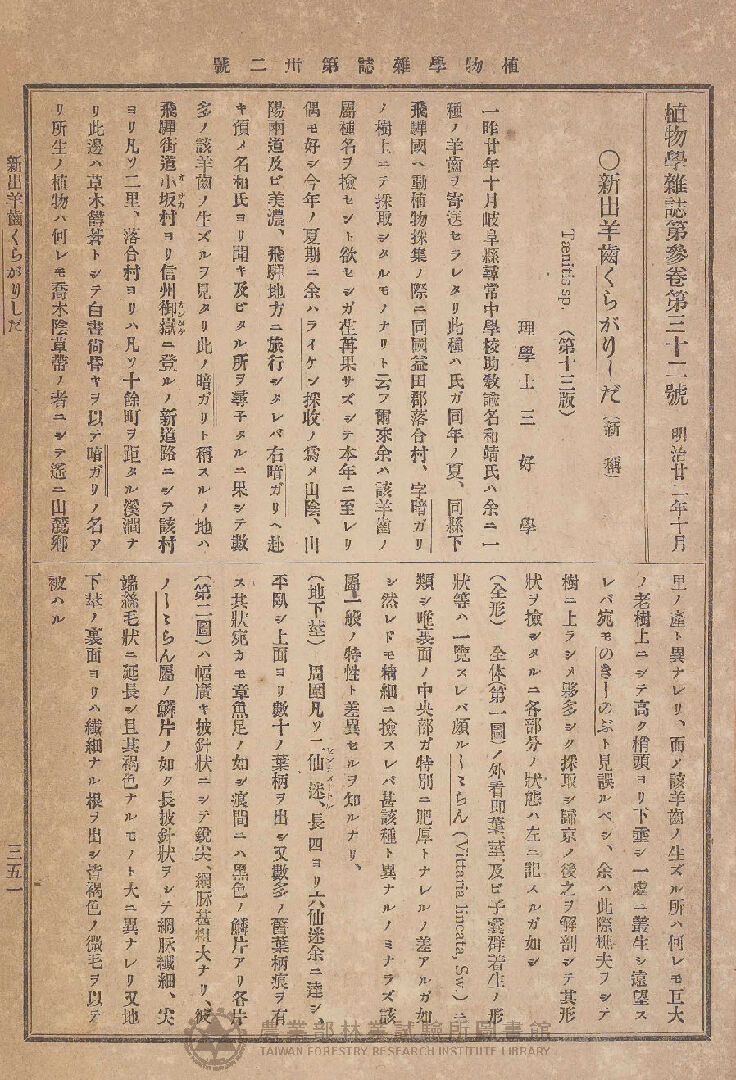 植物學雜誌第卅二號
植物學雜誌第參卷第三十二號　明治廿二年十月
〇新出羊齒くらがりしだ（新稱）
Tænitis sp.（第十三版）
理學士三好學
一昨廿年十月岐阜縣尋常中學校助教諭名和靖氏ハ余ニ一
種ノ羊齒ヲ寄送セラレタリ此種ハ氏ガ同年ノ夏、同縣下
飛驒國ハ動植物採集ノ際ニ同國益田郡落合村、字暗ガリ
ノ樹上ニテ採取シタルモノナリト云フ爾來余ハ該羊齒ノ
屬種名ヲ撿セント欲セシガ荏苒果サズシテ本年ニ至レリ
偶モ好シ今年ノ夏期ニ余ハライケン採收ノ爲メ山陰、山
陽兩道及ビ美濃、飛驒地方ニ旅行シタレバ右暗ガリヘ赴
キ預メ名和氏ヨリ聞キ及ビタル所ヲ尋子タルニ果シテ數
多ノ該羊齒ノ生ズルヲ見タリ此ノ暗ガリト稱スルノ地ハ
飛驒街道小坂村ヨリ信州御嶽ニ登ルノ新道路ニシテ該村
ヨリ凡ソ二里、落合村ヨリハ凡ソ十餘町ヲ距タル溪澗ナ
リ此邊ハ草木欝蒼トシテ白晝尙昏キヲ以テ暗ガリノ名ア
リ所生ノ植物ハ何レモ喬木陰草帶ノ者ニシテ遙ニ山麓鄕
里ノ產ト異ナレリ、而ノ該羊齒ノ生ズル所ハ何レモ巨大
ノ老樹上ニシテ高ク梢頭ヨリ下垂シ一處ニ叢生シ遠望ス
レバ宛モのきしのぶト見誤ルベシ、余ハ此際樵夫ヲシテ
樹ニ上ラシメ夥多シク採取シ歸京ノ後之ヲ解剖シテ其形
狀ヲ撿シタルニ各部分ノ狀態ハ左ニ記スルガ如シ
（全形）　全体（第一圖）ノ外看即葉、莖、及ビ子囊群着生ノ形
狀等ハ一覽スレバ頗ルししらん（Vittaria lineata, Sw.）ニ
類シ唯裏面ノ中央部ガ特別ニ肥厚トナレルノ差アルガ如
シ然レドモ精細ニ撿スレバ甚該種ト異ナルノミナラズ該
屬一般ノ特性ト差異セルヲ知ルナリ、
（地下莖）　周圍凡ソ一仙迷、長四ヨリ六仙迷余ニ達シ、
平臥シ上面ヨリ數十ノ葉柄ヲ出シ又數多ノ舊葉柄痕ヲ有
ス其狀宛カモ章魚足ノ如シ痕間ニハ黑色ノ鱗片アリ各片
（第二圖）ハ幅廣キ披針狀ニシテ銳尖、網脉甚粗大ナリ、彼
ノししらん屬ノ鱗片ノ如ク長披針狀ヲシテ網脉纖細、尖
端絲毛狀ニ延長シ且其褐色ナルモノト大ニ異ナレリ又地
下莖ノ裏面ヨリハ纖細ナル根ヲ出シ皆褐色ノ微毛ヲ以テ
被ハル
新出羊齒くらがりしだ
三五一
農業部林業試驗所圖書館
TAIWAN FORESTRY RESEARCH INSTITUTE LIBRARY